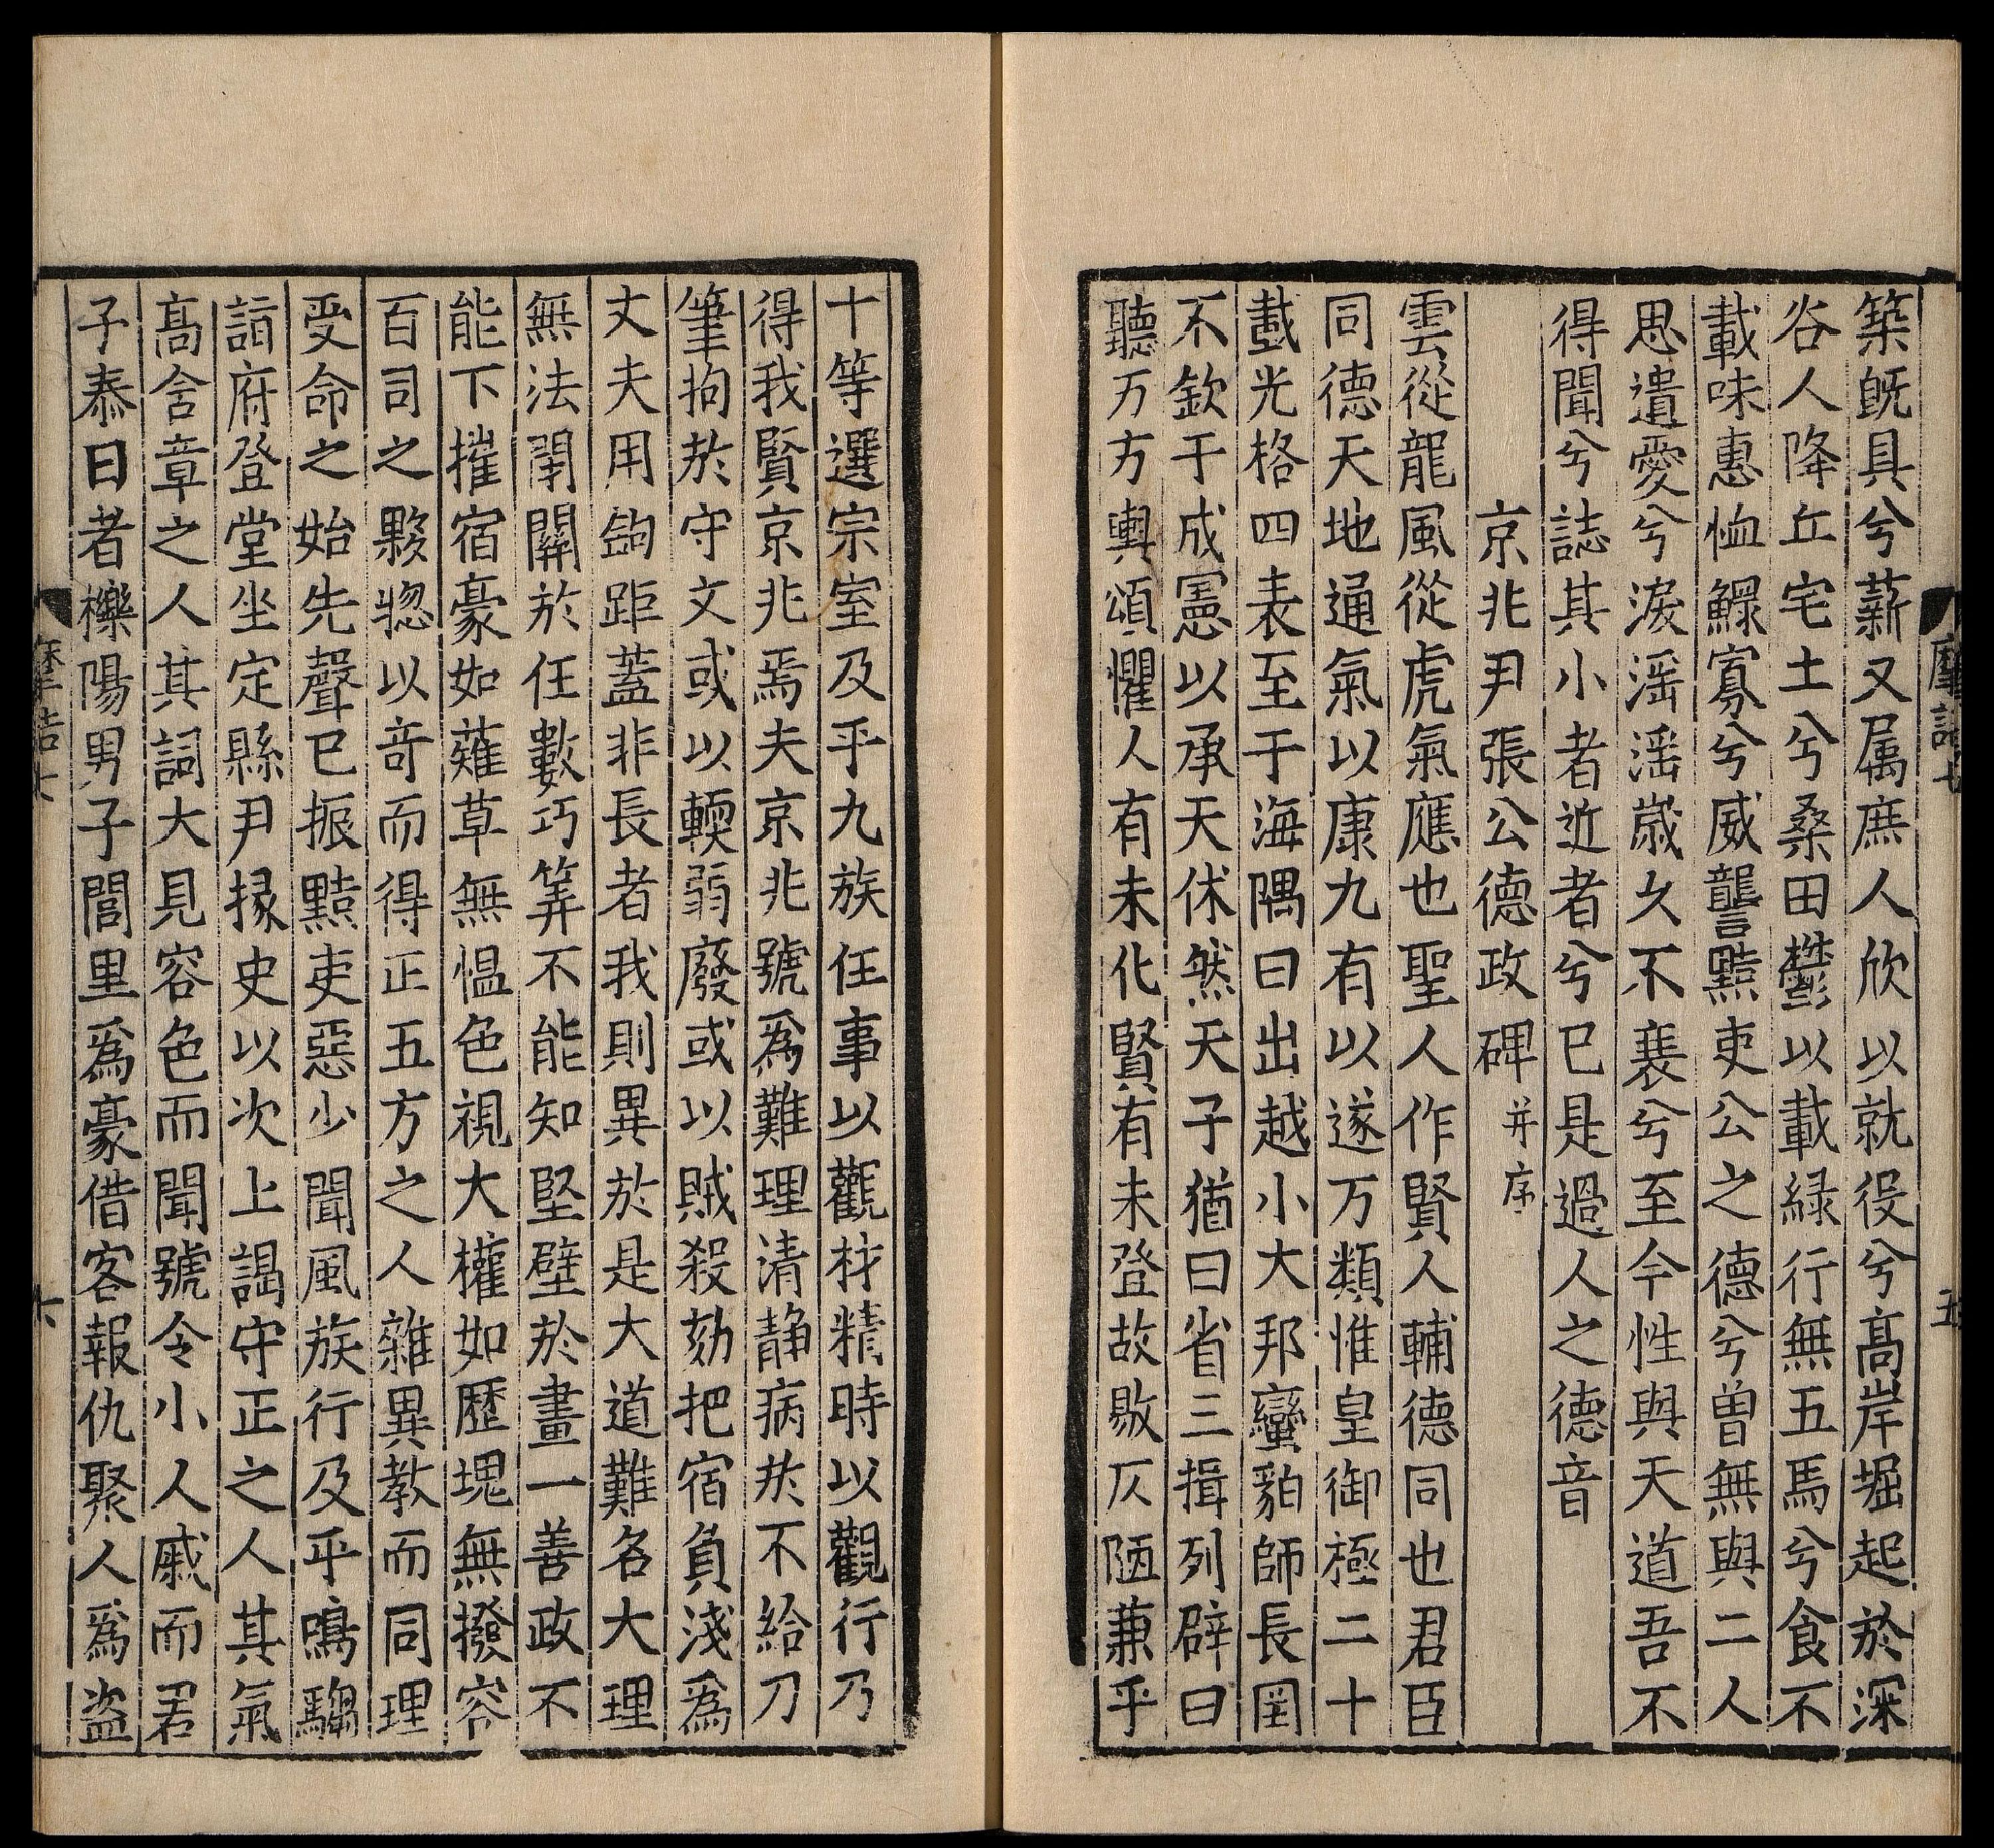 築既具兮薪又属庶人欣以就役兮髙岸堀起於深
谷人降丘宅土兮桑田鬱以載緑行無五馬兮食不
載味惠恤鰥寡兮威讋黠吏公之德兮曽無與二人
思遺愛兮淚滛滛歳乆不衰兮至今性與天道吾不
得聞兮誌其小者近者兮已是過人之德音
京兆尹張公德政碑并序
雲從龍風從虎氣應也聖人作賢人輔德同也君臣
同德天地通氣以康九有以遂万類惟皇御極二十
載光格四表至于海隅日出越小大邦蠻貊師長罔
不欽于成憲以承天休然天子猶曰省三揖列辟曰
聽万方輿頌懼人有未化賢有未登故敭仄陋兼乎
十等選宗室及乎九族任事以觀材精時以觀行乃
得我賢京兆焉夫京兆號爲難理清静病於不給刀
筆拘於守文或以輭弱廢或以賊殺劾把宿負淺爲
丈夫用鉤距蓋非長者我則異於是大道難名大理
無法閉關於任數巧筭不能知堅壁於畫一善政不
能下摧宿豪如薙草無愠色視大權如歷塊無撥容
百司之夥揔以竒而得正五方之人雜異教而同理
受命之始先聲已振黠吏惡少聞風族行及乎鳴騶
詣府登堂坐定縣尹掾史以次上謁守正之人其氣
髙含章之人其詞大見容色而聞號令小人戚而君
子泰曰者櫟陽男子閭里爲豪借客報仇聚人爲盗